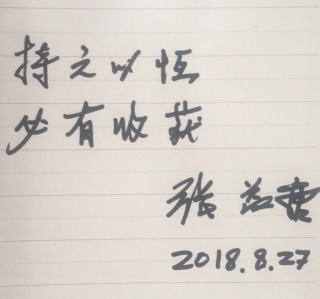 持之以恒
必有收获
张益唐
2018.8.27